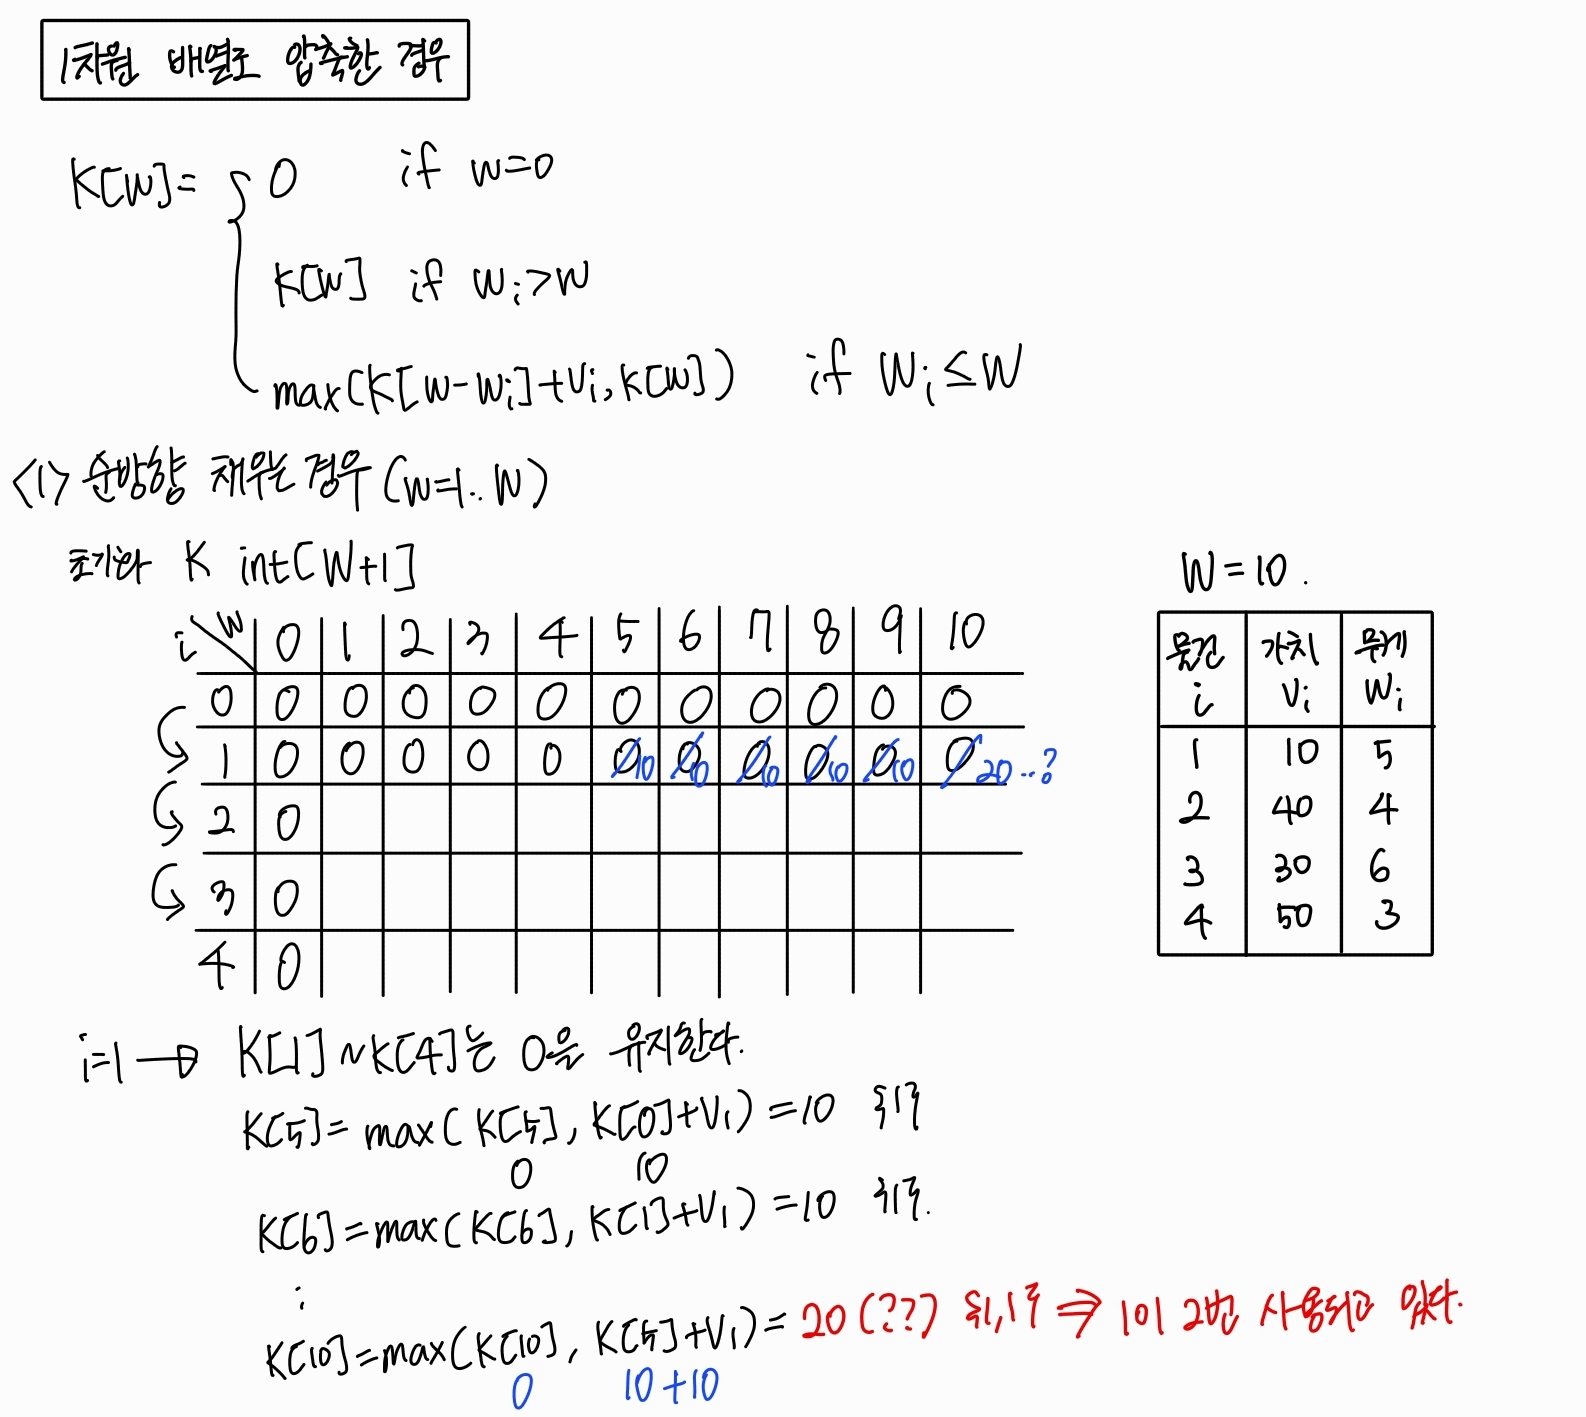 1차원 배열로 압축한 경우
K[W]= { 0 if w=0
K[W] if wi>w
max(K[w-wi]+vi, K[w]) if wi≤w
<1> 순방향 채우는 경우 (w=1..W)
초기화 K int[W+1]
W=10.
i\w 0 1 2 3 4 5 6 7 8 9 10
0 0 0 0 0 0 0 0 0 0 0 0
1 0 0 0 0 0 0 10 0 10 0 10 0 10 0 10 0 20..?
2 0
3 0
4 0
물건 i 가치 Vi 무게 Wi
1 10 5
2 40 4
3 30 6
4 50 3
i=1 → K[1] ~ K[4]는 0을 유지한다.
K[5]= max( K[5], K[0]+V1) =10 {1}
0 10
K[6]=max( K[6], K[1]+V1) =10 {1}.
⋮
K[10]=max(K[10], K[5]+V1)= 20 (??) {1,1} ⇒ 1이 2번 사용되고 있다.
0 10+10